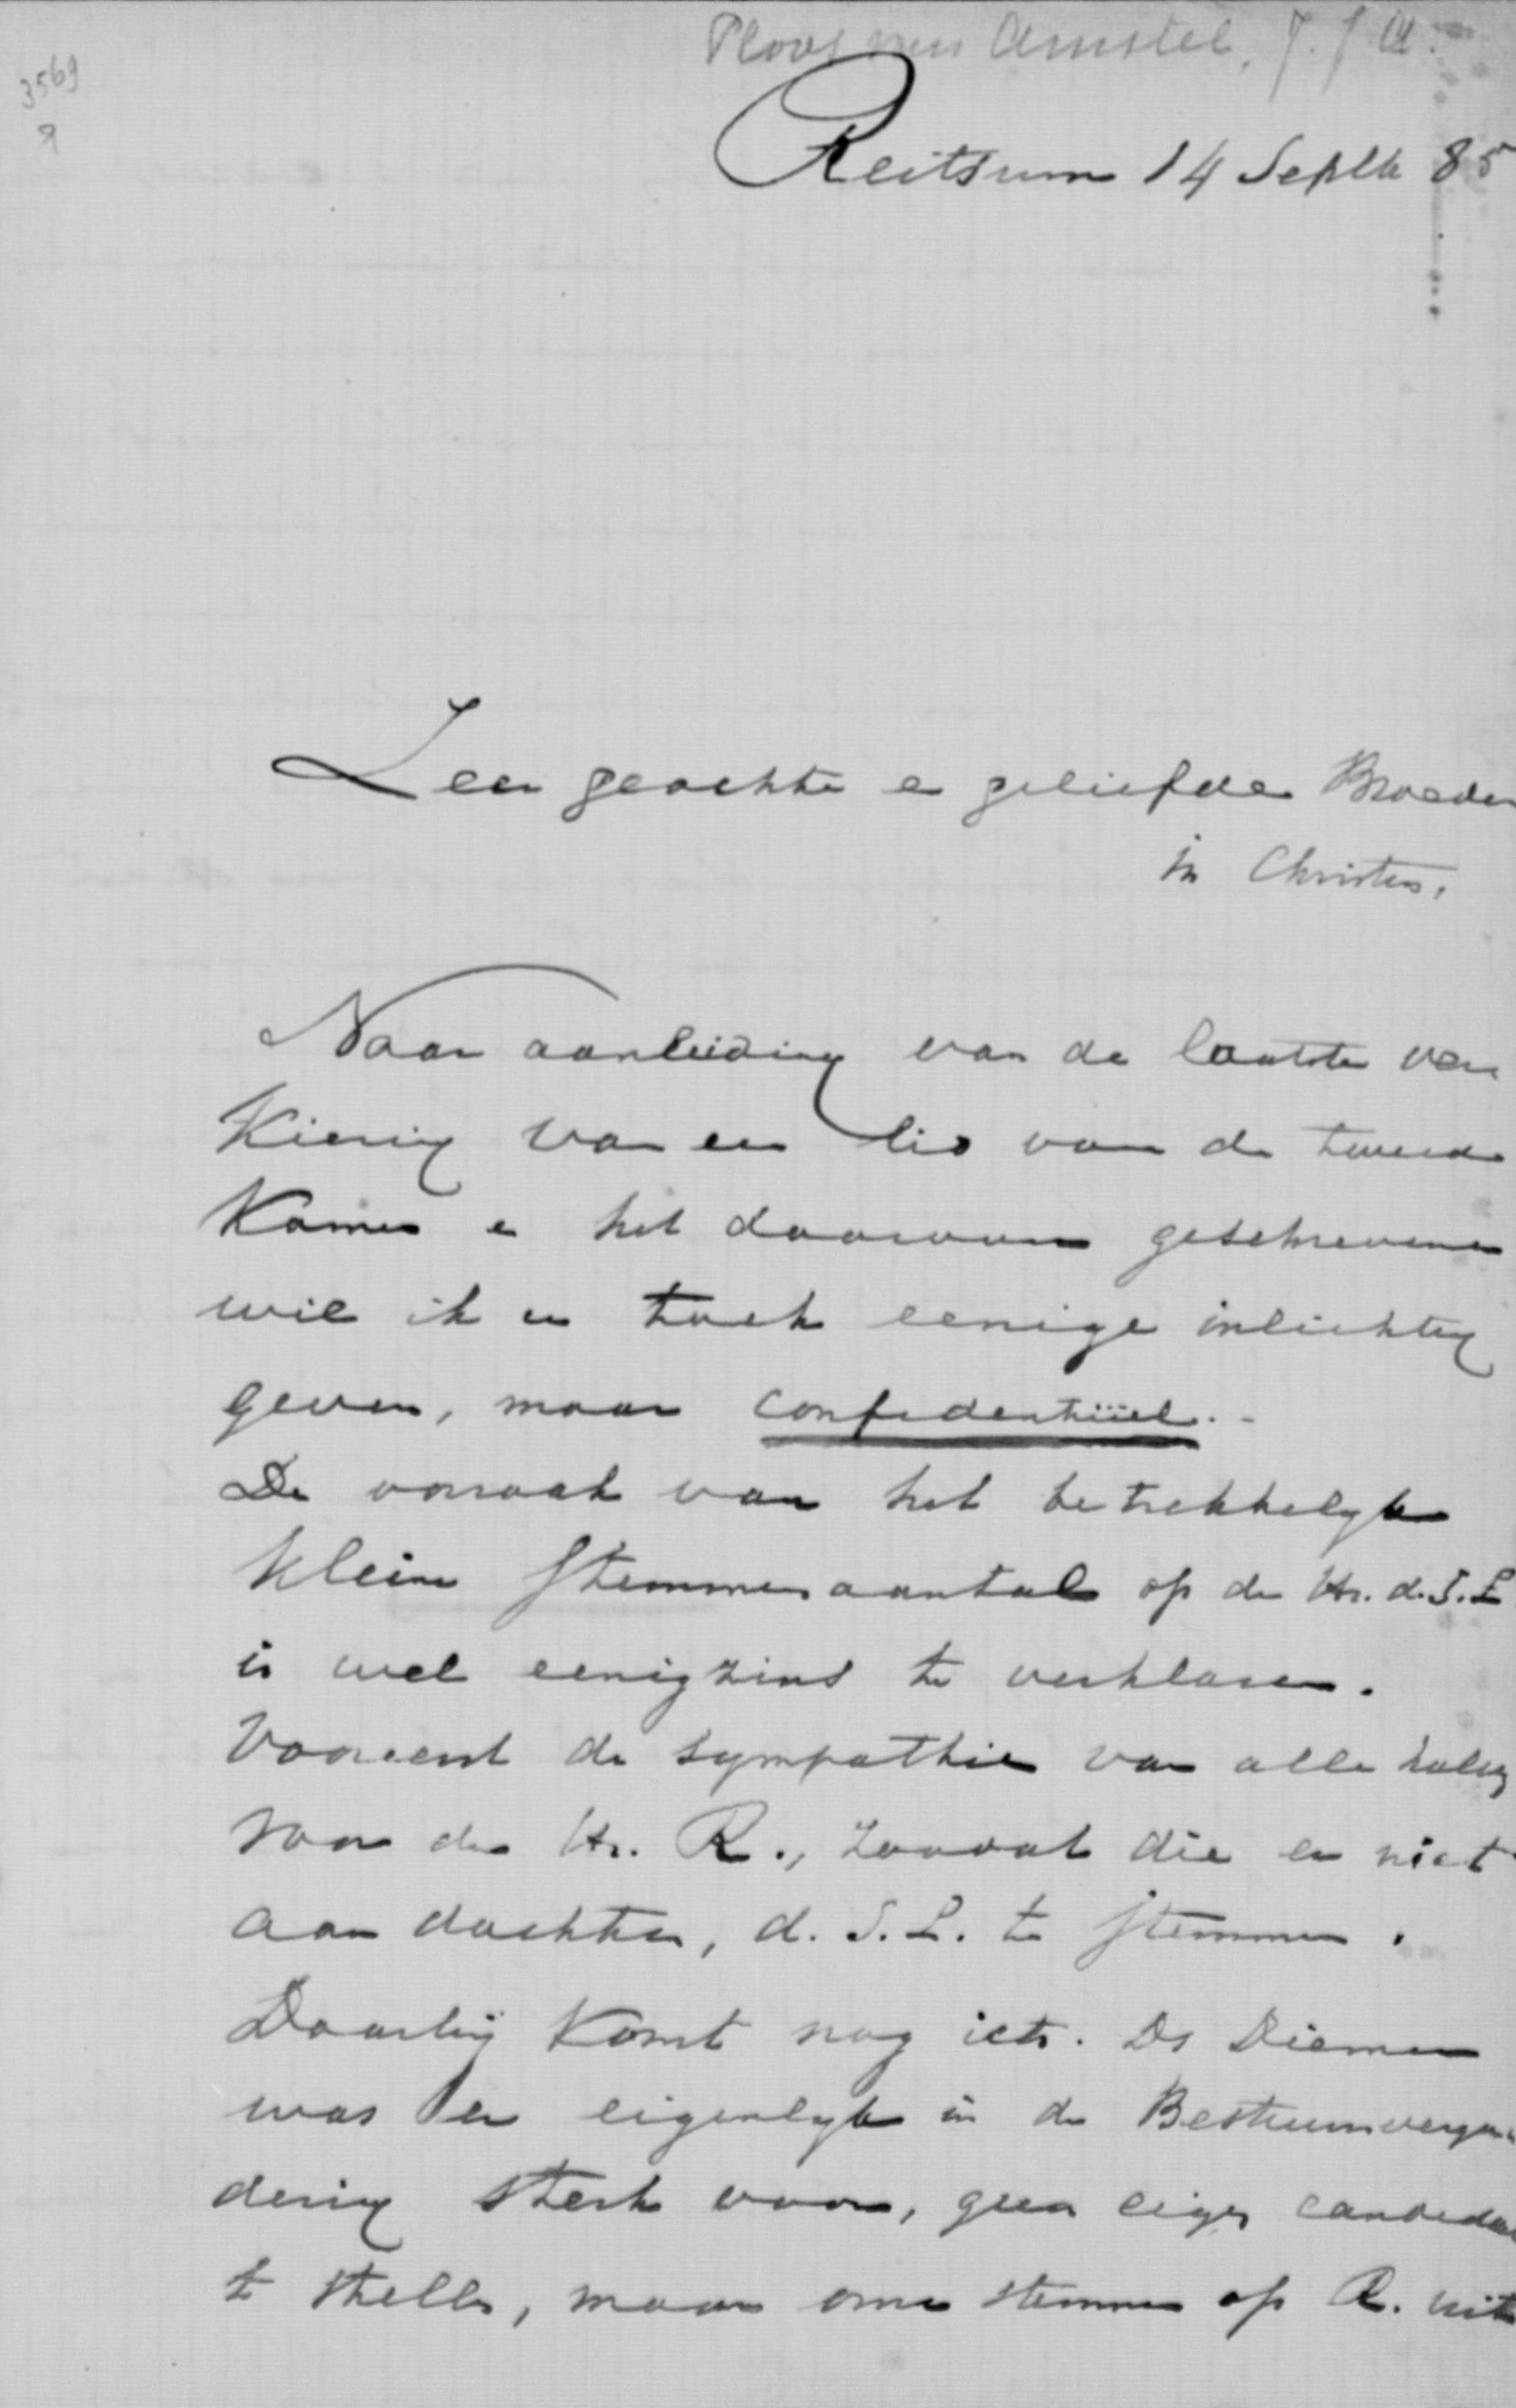 Ploos van Amstel, J. J. A.
3569
Reitsum 14 Septb 85
Zeer geachte en geliefde Broeder
in Christus,
Naar aanleiding van de laatste ver
kiezing van een lid van de tweede
Kamer en het daarover geschrevene
wil ik u toch eenige inlichting
geven, maar confidentiëel.-
De oorzaak van het betrekkelijk
klein stemmenaantal op de Hr. d. S. L.
is wel eenigzins te verklaren.
Vooreerst de sympathie van alle
voor den Hr. R., zoodat die er niet
aan dachten, d. S. L. te stemmen.
Daarbij komt nog iets. Ds Diemer
was er eigenlijk in de Bestuursverga-
dering sterk voor, geen eigen candidaat
te stellen, maar onze stemmen op R. uit